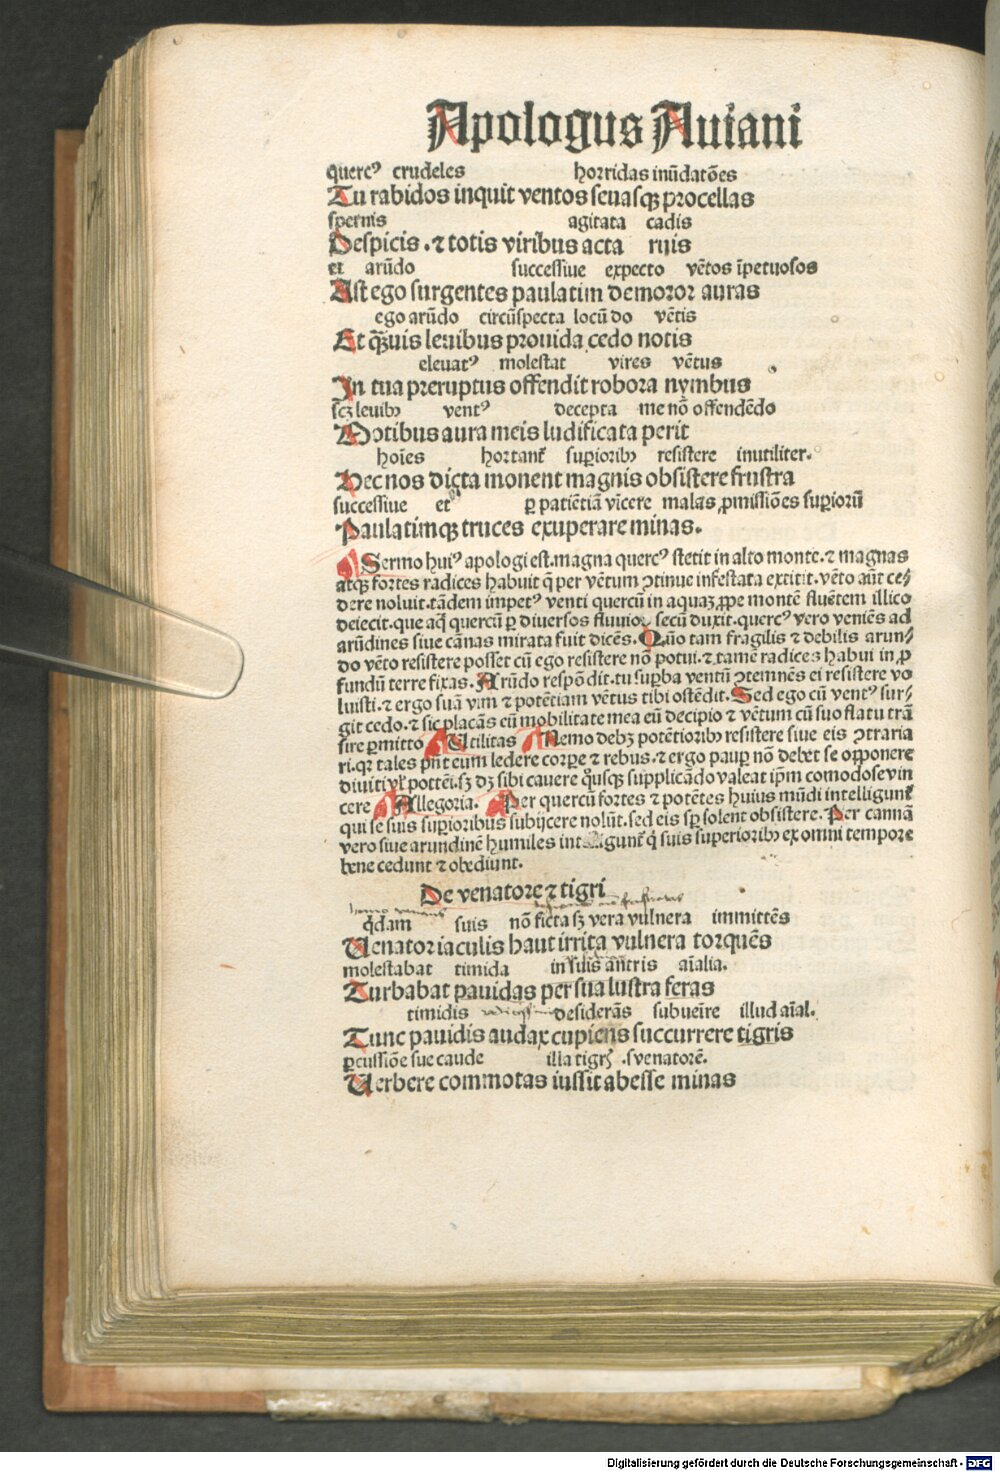 Apologus Auiani
querc⁹ crudeles horridas inūdatōes
Tu rabidos inquit ventos seuasq̃ procellas
spernis agitata cadis
Despicis . ⁊ totis viribus acta ruis
et arūdo successiue expecto vētos īpetuosos
Ast ego surgentes paulatim demoror auras
ego arūdo circūspecta locū do vētis
Et q̃uis leuibus prouida cedo notis
eleuat⁹ molestat vires vētus
In tua preruptus offendit robora nymbus
scꝫ leuibꝫ vent⁹ decepta me nō offendēdo
Motibus aura meis ludificata perit
hoīes hortant᷑ suꝑioribꝫ resistere inutiliter.
Hec nos dicta monent magnis obsistere frustra
successiue et ꝑ patiētiā vīcere malas ꝓmissiōes suꝑiorū
Paulatimqꝫ truces exuperare minas.
Sermo hui⁹ apologi est. magna querc⁹ stetit in alto monte. ⁊ magnas
atqꝫ fortes radices habuit q̄ per vētum ↄtinue infestata extitit. vēto aūt ce⸗
dere noluit. tādem impet⁹ venti quercū in aquaꝫ ꝓpe montē fluētem illico
deiecit. que aq̄ quercū ꝑ diuersos fluuioꝝ secū duxit. querc⁹ vero veniēs ad
arūdines siue cānas mirata fuit dicēs. Quō tam fragilis ⁊ debilis arun⸗
do vēto resistere posset cū ego resistere nō potui. ⁊ tamē radices habui in ꝓ
fundū terre fixas. Arūdo respōdit. tu suꝑba ventū ↄtemnēs ei resistere vo
luisti. ⁊ ergo suā vim ⁊ potētiam vētus tibi ostēdit. Sed ego cū vent⁹ sur⸗
git cedo. ⁊ sic placās eū mobilitate mea eū decipio ⁊ vētum cū suo flatu trā
sire ꝑmitto Utilitas Nemo debꝫ potētioribꝫ resistere siue eis ↄtraria
ri. qr tales pn̄t eum ledere corꝑe ⁊ rebus. ⁊ ergo pauꝑ nō debet se opponere
diuiti vl̓ pottēi. sꝫ dꝫ sibi cauere q̇usqꝫ supplicādo valeat ip̄m comodose vin
cere Allegoria. Per quercū fortes ⁊ potētes huius mūdi intelligunt᷑
qui se suis suꝑioribus subijcere nolūt. sed eis sꝑ solent obsistere. Per cannā
vero siue arundinē humiles intelligunt᷑ q̇ suis superioribꝫ ex omni tempore
bene cedunt ⁊ obediunt.
De venatore ⁊ tigri
q̇dam suis nō ficta sꝫ vera vulnera immittēs
Uenator iaculis haut irrita vulnera torquēs
molestabat timida in siluis antris aīalia.
Turbabat pauidas per sua lustra feras
timidis desiderās subueīre illud aīal.
Tunc pauidis audax cupiens succurrere tigris
ꝑcussiōe sue caude illa tigrꝭ .s venatorē.
Uerbere commotas iussit abesse minas
Digitalisierung gefördert durch die Deutsche Forschungsgemeinschaft - DFG